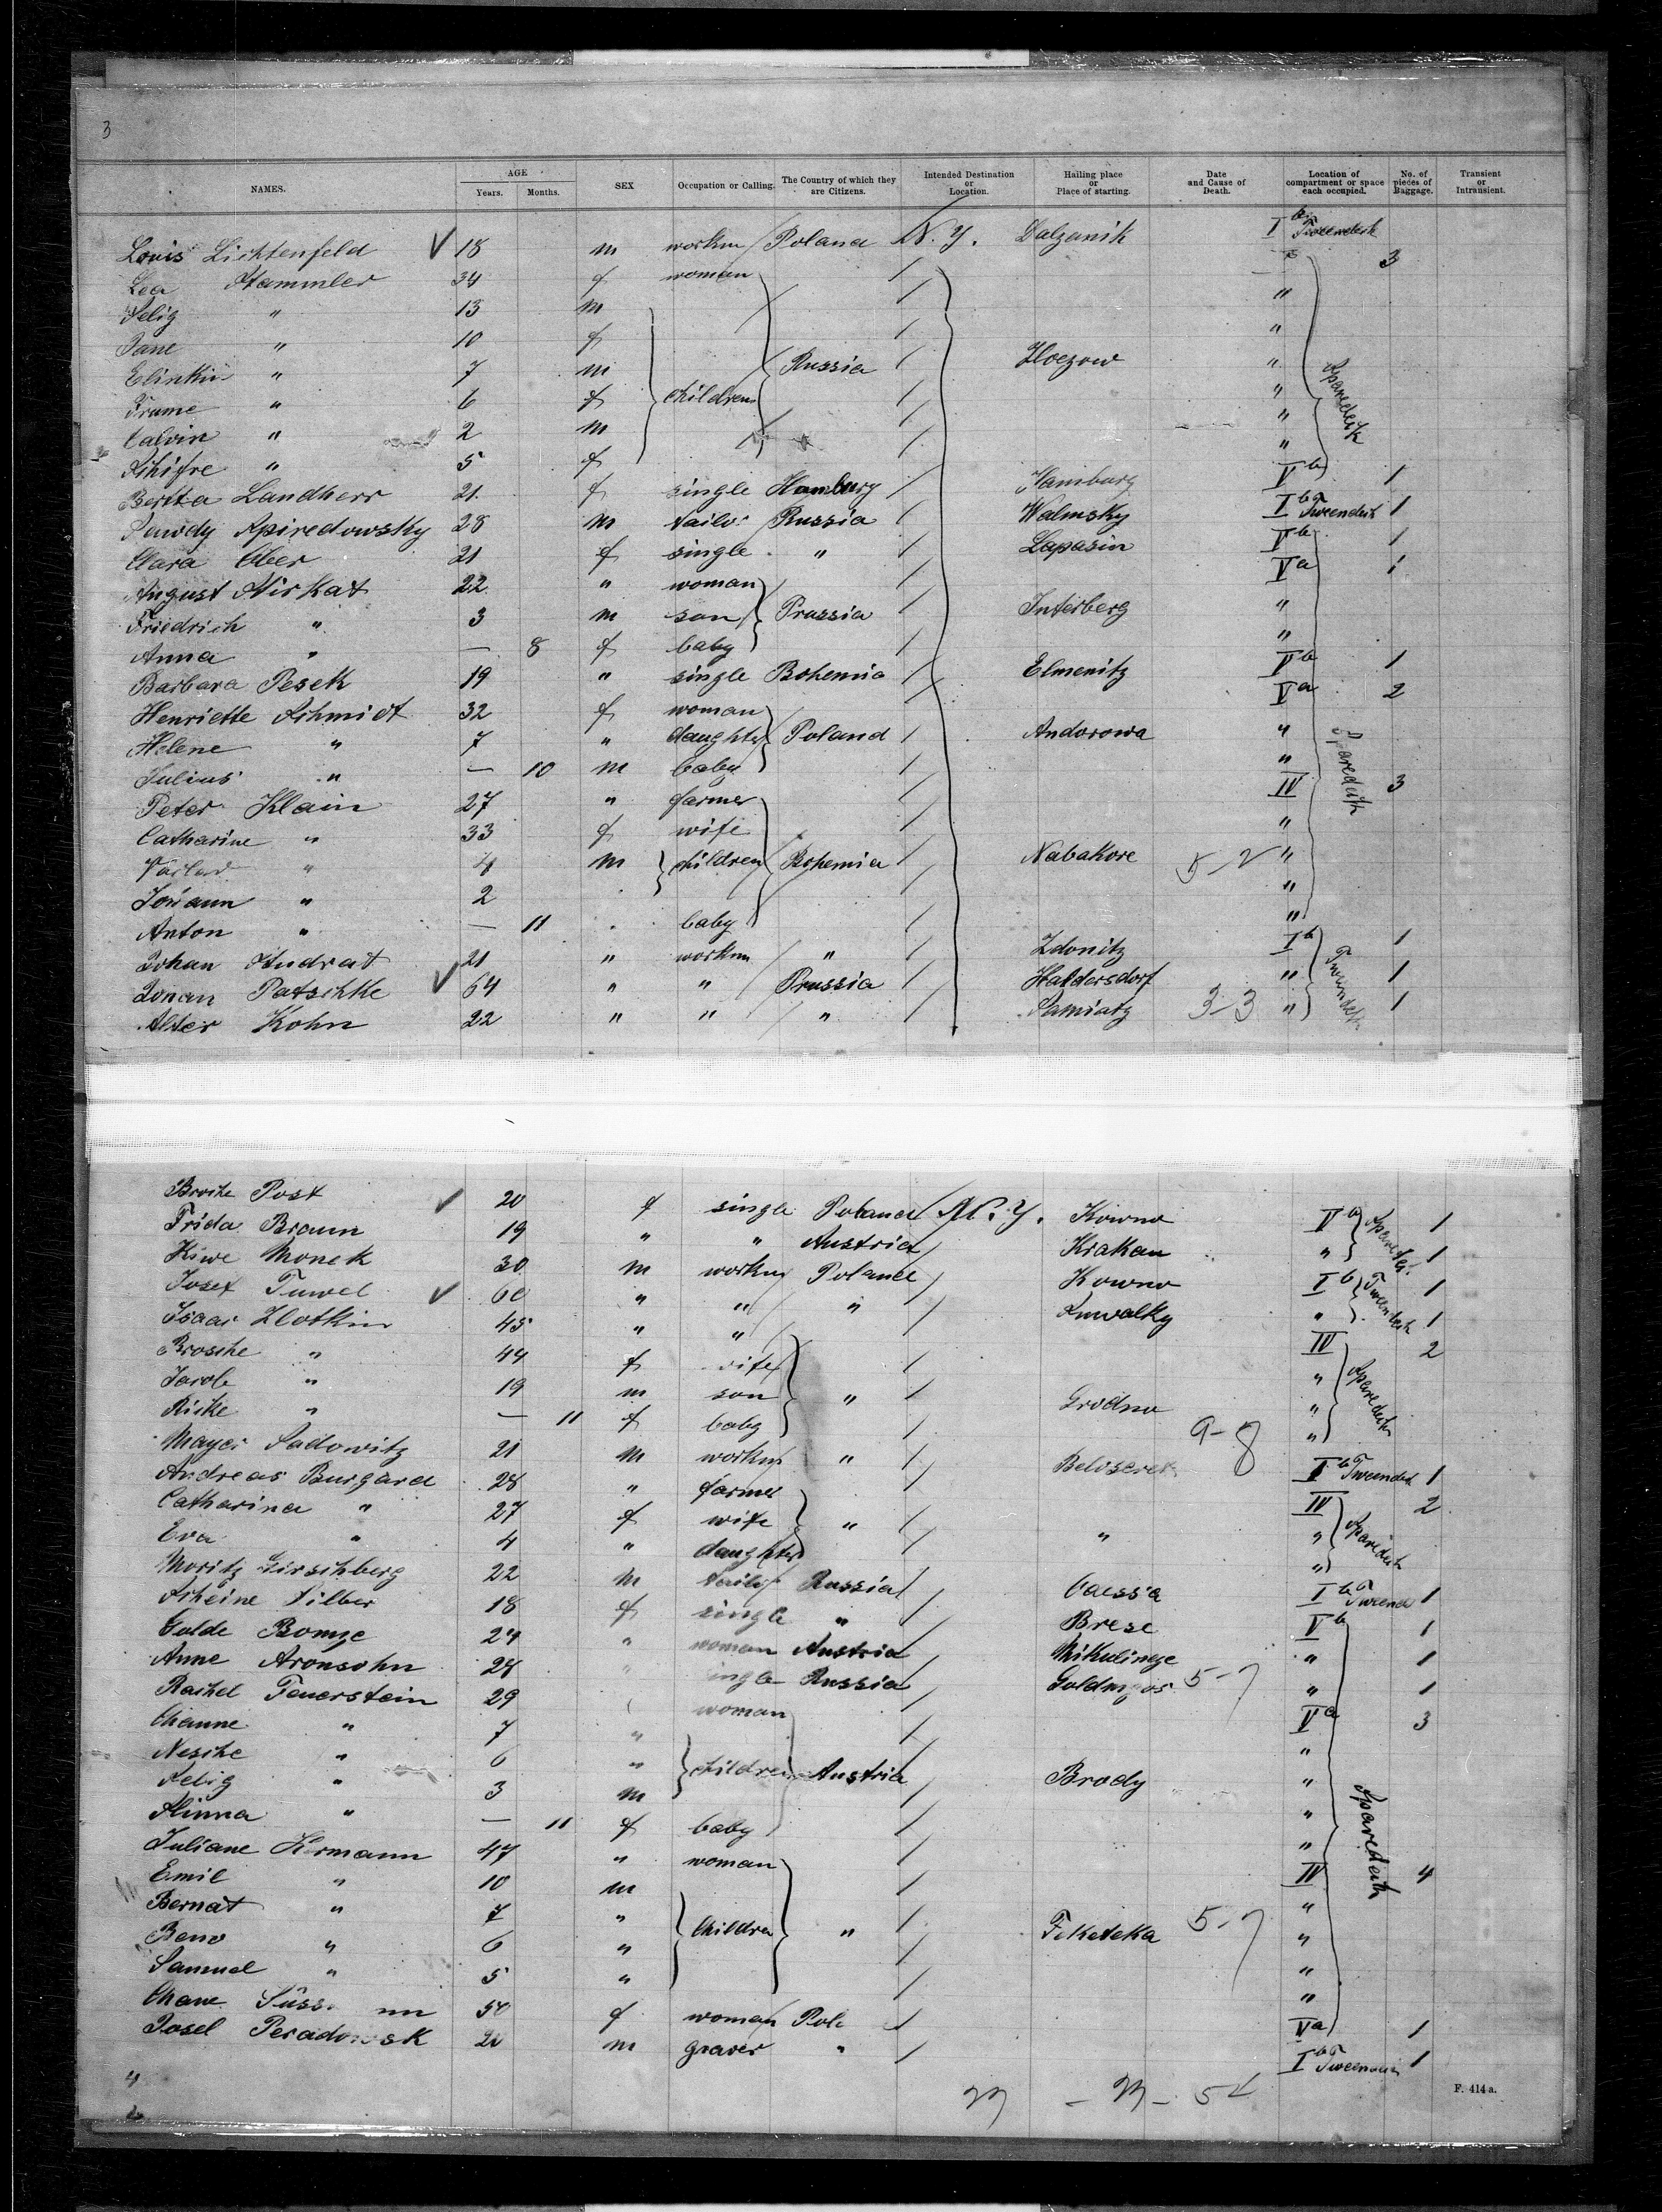 3
NAMES. AGE Years. Months. SEX Occupation or Calling. The Country of which they are Citizens. Intended Destination or Location. Hailing place or Place of starting. Date and Cause of Death. Location of compartment or space each occupied. No. of pieces of Baggage. Transient or Intransient.
Louis Lichtenfeld √ 18 m workm Poland N. Y. Dalzanik I b Tweendeck
Lea Stammler 34 f woman 3
Selig " 13 m "
Jane " 10 f "
Elinkin " 7 m Russia Zloczow "
Frume " 6 f children " Sparedeck
Calvin " 2 m "
Schifre " 5 f "
Bertta Landherr 21 f single Hamburg Hamburg V b 1
Sawdy Spiredowsky 28 m tailor Russia Walmsky I b Tweendeck 1
Clara Ober 21 f single " Lapasin V b 1
August Stirkat 22 " woman V a 1
Friedrich " 3 m son Prussia Interberg "
Anna " — 8 f baby "
Barbara Pesek 19 " single Bohemia Elmenitz V b 1
Henriette Schmidt 32 f woman V a 2
Helene " 7 " daughter Poland Andorowa "
Julius " — 10 m baby " Sparedeck
Peter Klain 27 " farmer IV 3
Catharine " 33 f wife "
Vaclav " 4 m children Bohemia Nabakore 5-2 "
Johann " 2 "
Anton " — 11 baby "
Johan Andrat 21 " workm " Zdonitz I b 1
Johan Patschke √ 64 " " Prussia Haldersdorf " Tweendeck 1
Alter Kohn 22 " " " Samiatz 3-3 " 1
Broche Post √ 20 f single Poland N. Y. Kowno V b Sparedeck 1
Frida Braun 19 " " Austria Krakau " 1
Kiwe Monek 30 m workm Poland Kowno I b Tweendeck 1
Josef Tuwel √ 60 " " " Suwalky " 1
Isaac Zlotkin 45 " " IV 2
Brosche " 44 f wife "
Jacob " 19 m son " Grodno " Sparedeck
Riske " — 11 f baby "
Mayer Sadowitz 21 m workm " Beloserek 9-8 I b Tweendeck 1
Andreas Burgard 28 " farmer IV 2
Catharina " 27 f wife " " " Sparedeck
Eva " 4 " daughter "
Moritz Hirschberg 22 m tailor Russia Odessa I b Tweendeck 1
Scheine Silber 18 f single " Brese V b 1
Golde Bomze 24 " woman Austria Mikulinze " 1
Anne Aronsohn 28 " single Russia 5-7 " 1
Rachel Feuerstein 29 woman V a 3
Channe " 7 " "
Nesche " 6 " children Austria Brody "
Selig " 3 m " Sparedeck
Minna " — 11 f baby "
Juliane Hermann 47 " woman IV 4
Emil " 10 m "
Bernat " 7 " Children " Feketeka 5-7 "
Beno " 6 " "
Samuel " 5 " "
Chane 50 f woman Pol V a 1
Josel Peradowsk 20 m graver " I b Tweendeck 1
F. 414 a.